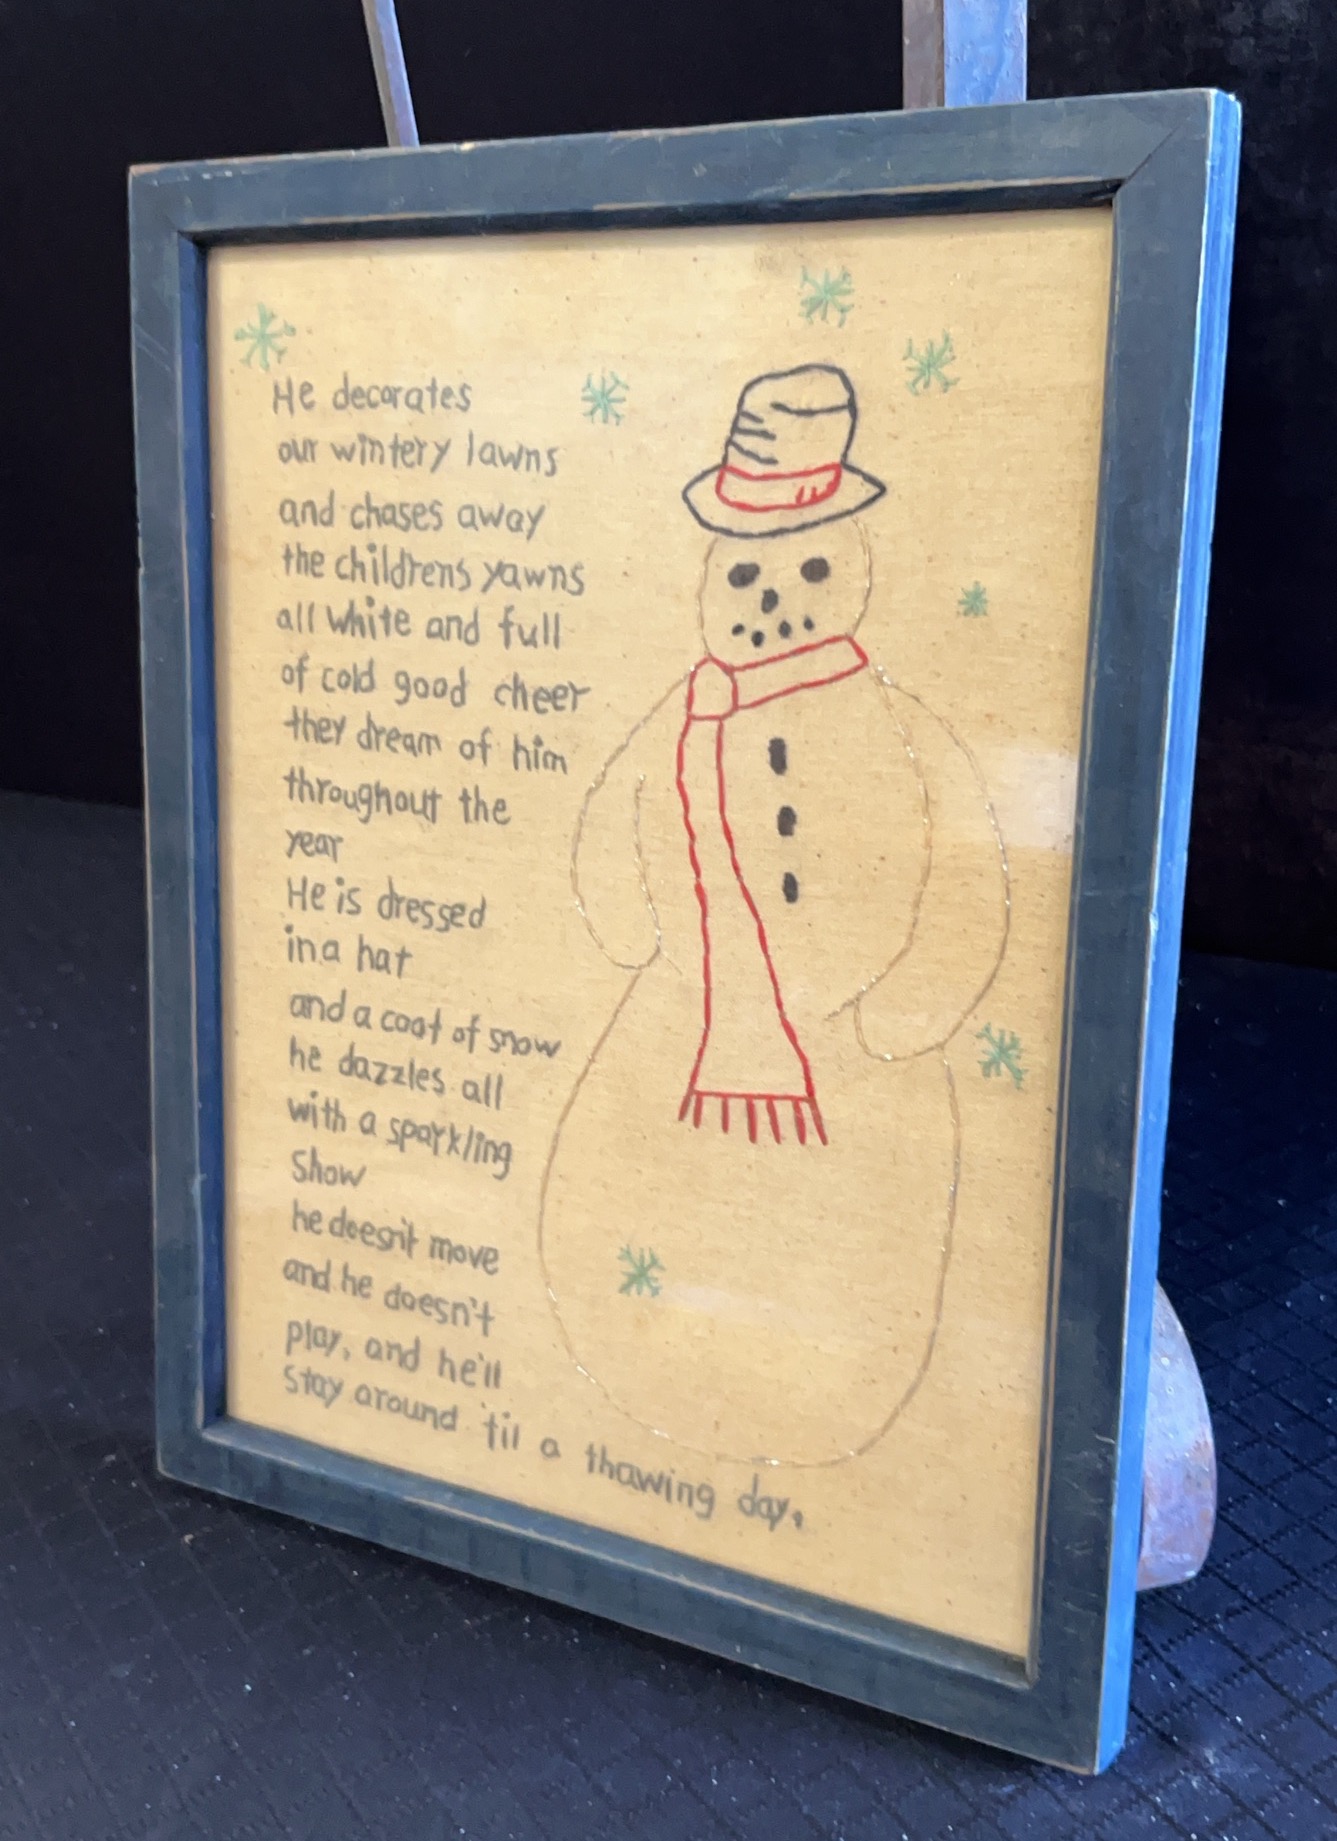 He decorates
our wintery lawns
and chases away
the childrens yawns
all white and full
of cold good cheer
they dream of him
throughout the
year
He is dressed
in a hat
and a coat of snow
he dazzles all
with a sparkling
show
he doesn't move
and he doesn't
play, and he'll
stay around 'til a thawing day.